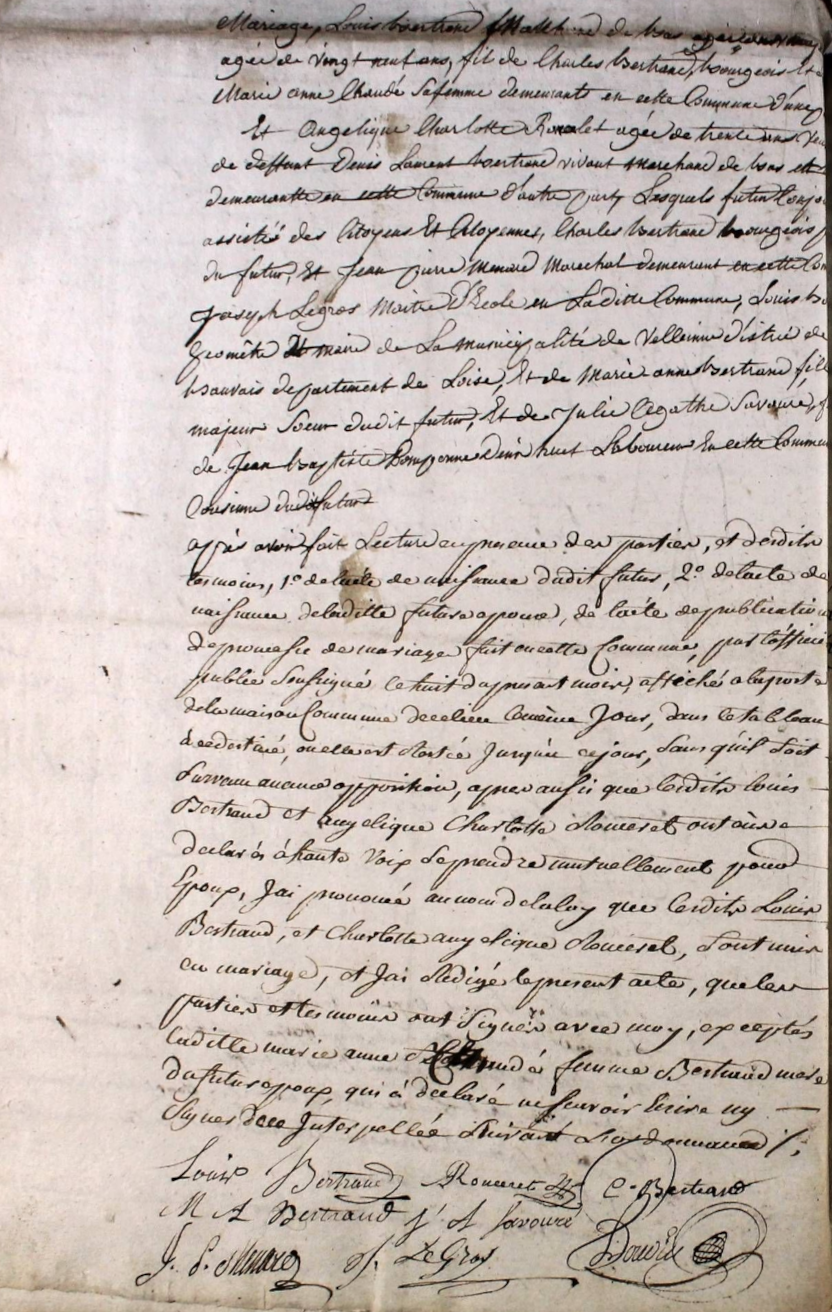 Mariage, Louis Bertrand Marchand de bas
agée de vingt neuf ans, fil de Charles Bertrand, bourgeois Et
Marie anne Chaudé Sa femme demeurants en cette Commune d'une
Et Angelique Charlotte Romeret agée de trente uns
de deffunt Denis Laurent Bertrand vivant Marchand de bas et
demeurantte en cette Commune d'autre part, Lesquels futur Conjo
assistés des Citoyens Et Citoyennes, Charles Bertrand bourgeois
du futur, Et Jean pierre Menard Marechal demeurant en cette Com
Joseph Legros Maitre D'Ecole en Laditte Commune, Louis
Geomêtre Et maire de La municipalité de Vellenne district de
bauvais departement de Loise, Et de Marie anne Bertrand fill
majeur Soeur dudit futur, Et de Julie Agathe Savouré, f
de Jean baptiste Pomponne Denis huet Laboureur En cette Commun
Cousinne dudit futur
après avoir fait Lecture en presence des parties, et desdits
temoins, 1.º de lacte de naissance dudit futur, 2.º de lacte de
naissance deladitte future epouse, de lacte de publication
de promesse de mariage fait en cette Commune, par l'officier
public Soussigné le huit du present mois, affiché a la porte
de la maison Commune de ce lieu le même Jour, dans le tableau
à ce destiné, ou elle est Restée jusqu'a ce jour, Sans qu'il Soit
Survenu aucune opposition, apres aussi que lesdits louis
Bertrand et angelique Charlotte Romeret ont eue
declarés à haute Voix Se prendre mutuellement pour
Epoux, J'ai prononcé au nom de la loy que lesdits Louis
Bertrand, et Charlotte angelique Romeret, Sont unis
en mariage, et J'ai Redigé le present acte, que les
parties et temoins ont Signés avec moy, exceptés
laditte marie anne femme Bertrand mere
du futur epoux, qui a declaré ne Scavoir Ecrire ny
Signer de ce Interpellée Suivant L'ordonnance /.
Louis Bertrand Romeret C. Bertrand
M A Bertrand j. A Savouré
J. P. Menard J. LeGros